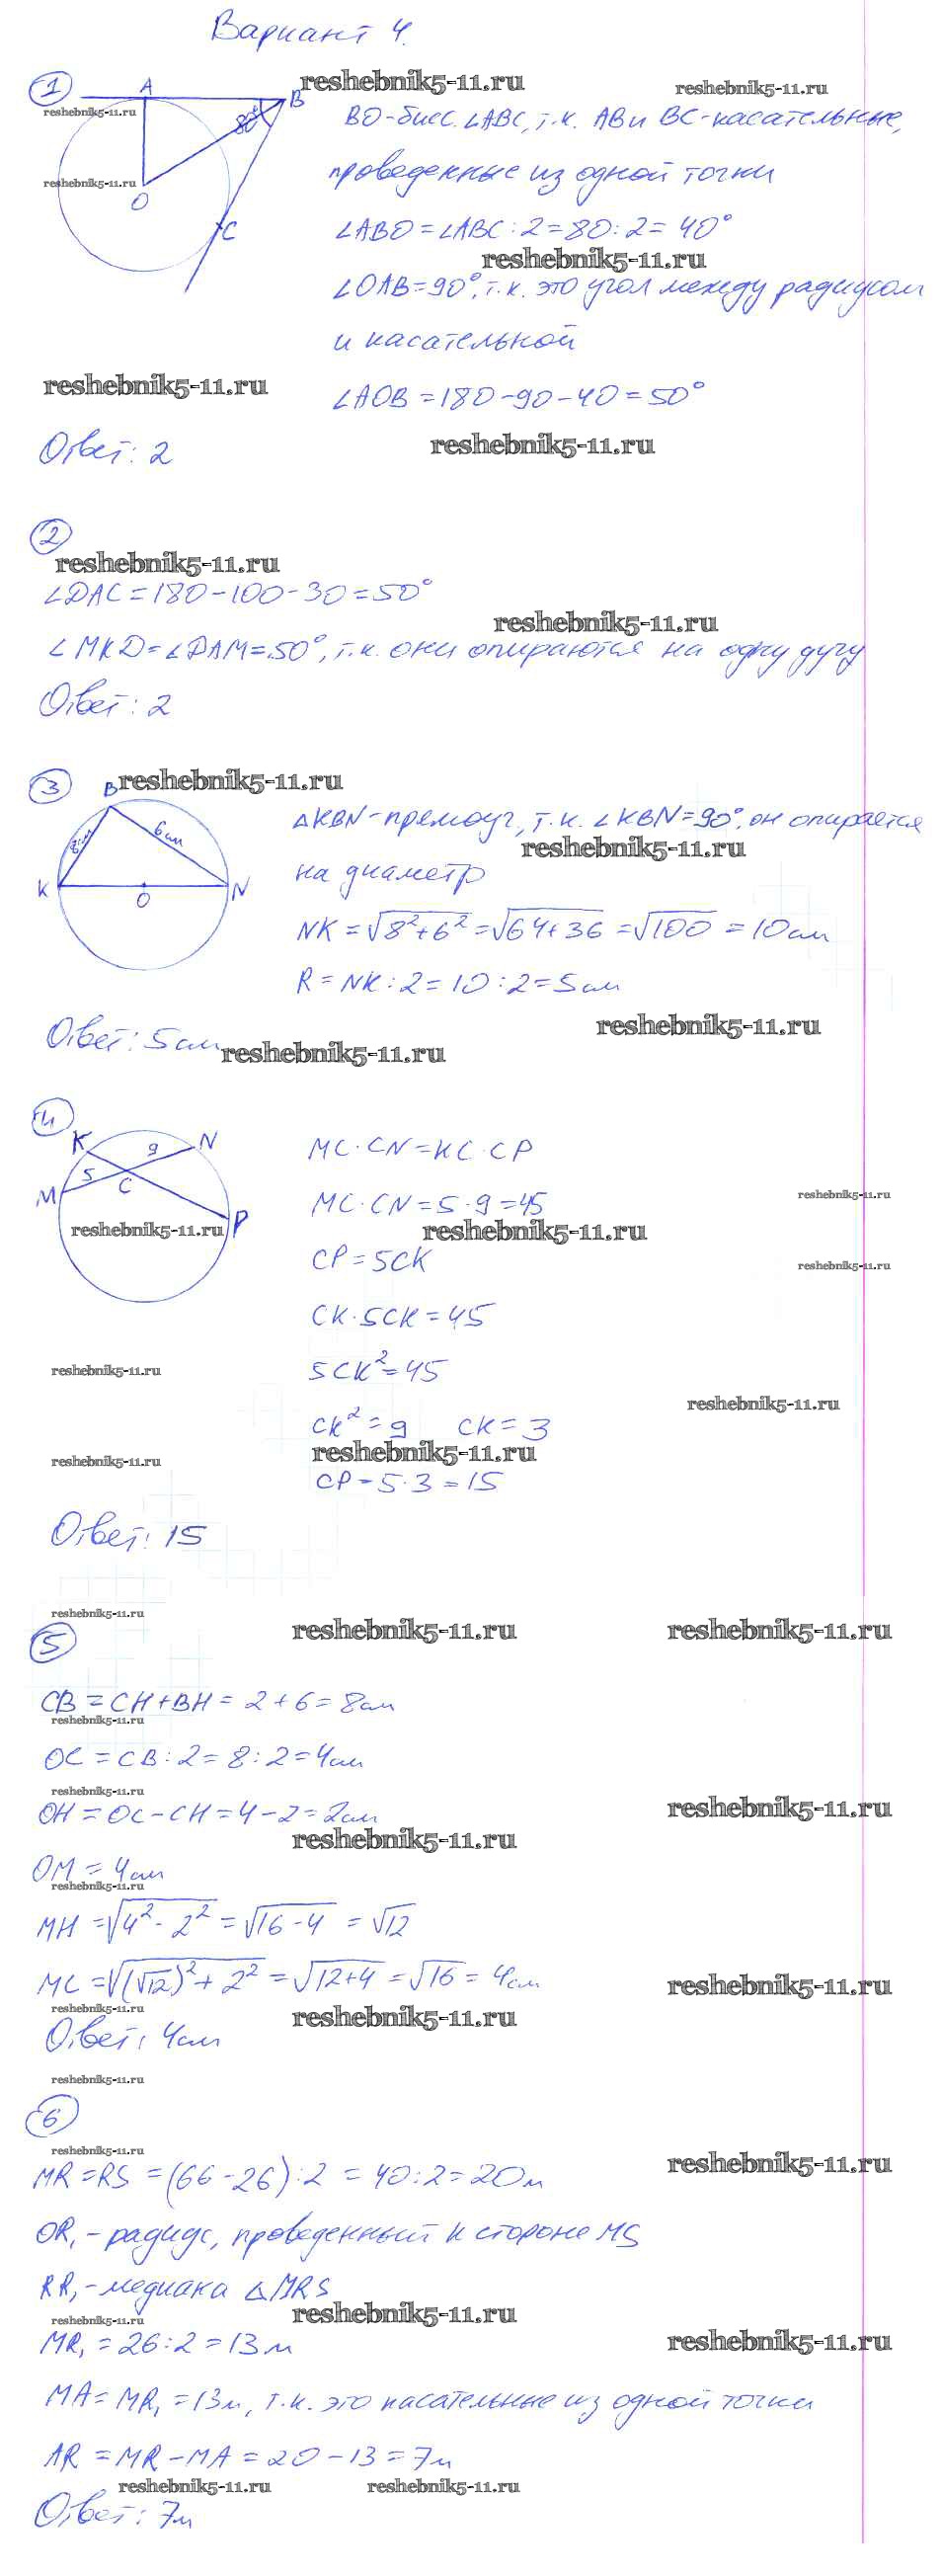 Вариант 4.
1
reshebnik5-11.ru
reshebnik5-11.ru
A
B
reshebnik5-11.ru
80°
BO-бисс. ∠ABC, т.к. AB и BC-касательные,
проведенные из одной точки
reshebnik5-11.ru
O
C
∠ABO = ∠ABC : 2 = 80 : 2 = 40°
reshebnik5-11.ru
∠OAB = 90°, т.к. это угол между радиусом
и касательной
reshebnik5-11.ru
∠AOB = 180 - 90 - 40 = 50°
reshebnik5-11.ru
Ответ: 2
2
reshebnik5-11.ru
∠DAC = 180 - 100 - 30 = 50°
reshebnik5-11.ru
∠MKD = ∠DAM = 50°, т.к. они опираются на одну дугу
Ответ: 2
3
B
reshebnik5-11.ru
8см
6см
K
O
N
△KBN - прямоуг, т.к. ∠KBN = 90°, он опирается
reshebnik5-11.ru
на диаметр
NK = √8²+6² = √64+36 = √100 = 10см
R = NK : 2 = 10 : 2 = 5см
reshebnik5-11.ru
Ответ: 5см
reshebnik5-11.ru
4
K
9
N
5
C
M
P
reshebnik5-11.ru
MC · CN = KC · CP
MC · CN = 5 · 9 = 45
reshebnik5-11.ru
reshebnik5-11.ru
CP = 5CK
reshebnik5-11.ru
CK · 5CK = 45
5CK² = 45
reshebnik5-11.ru
reshebnik5-11.ru
CK² = 9 CK = 3
reshebnik5-11.ru
reshebnik5-11.ru
CP = 5 · 3 = 15
Ответ: 15
reshebnik5-11.ru
5
reshebnik5-11.ru
reshebnik5-11.ru
CB = CH + BH = 2 + 6 = 8см
reshebnik5-11.ru
OC = CB : 2 = 8 : 2 = 4см
reshebnik5-11.ru
OH = OC - CH = 4 - 2 = 2см
reshebnik5-11.ru
reshebnik5-11.ru
OM = 4см
reshebnik5-11.ru
MH = √4² - 2² = √16 - 4 = √12
MC = √(√12)² + 2² = √12+4 = √16 = 4см
reshebnik5-11.ru
reshebnik5-11.ru
reshebnik5-11.ru
Ответ: 4см
reshebnik5-11.ru
6
reshebnik5-11.ru
reshebnik5-11.ru
MR = RS = (66 - 26) : 2 = 40 : 2 = 20м
OR₁ - радиус, проведенный к стороне MS
RR₁ - медиана △MRS
reshebnik5-11.ru
reshebnik5-11.ru
MR₁ = 26 : 2 = 13м
reshebnik5-11.ru
MA = MR₁ = 13м, т.к. это касательные из одной точки
AR = MR - MA = 20 - 13 = 7м
reshebnik5-11.ru
reshebnik5-11.ru
Ответ: 7м